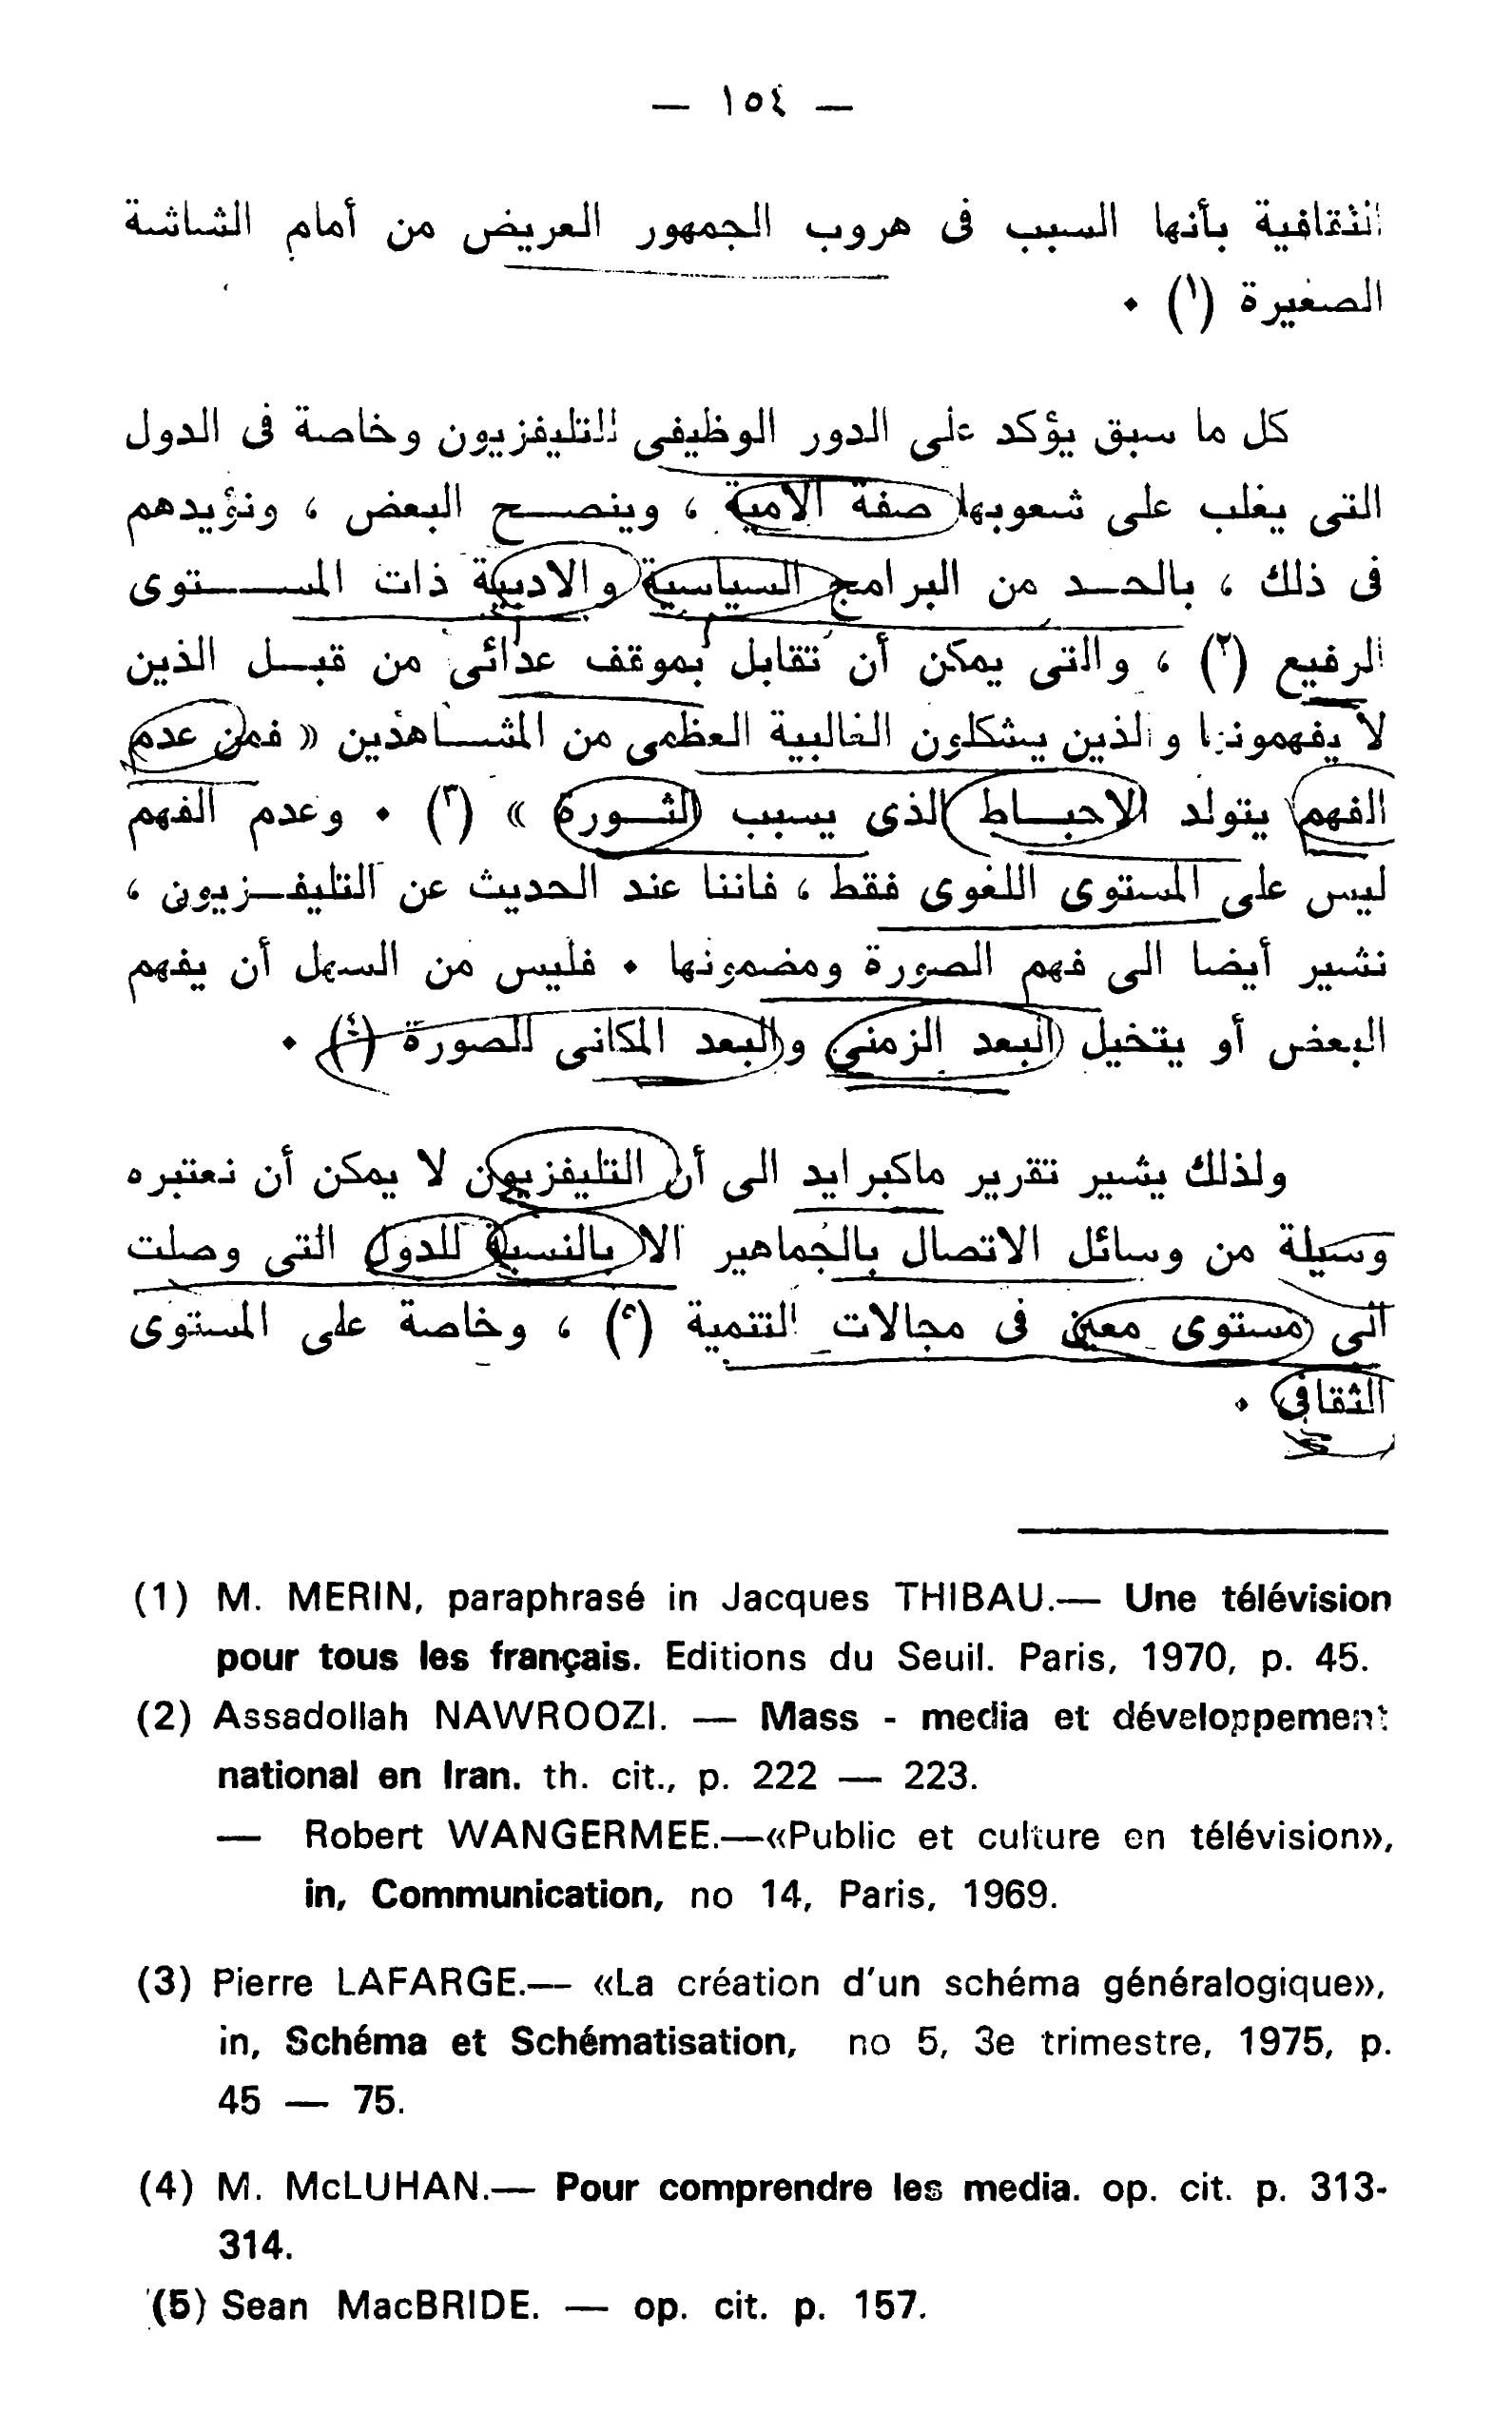 — ١٥٤ —
الثقافية بأنها السبب فى هروب الجمهور العريض من أمام الشاشة
الصغيرة (١) ٠
كل ما سبق يؤكد على الدور الوظيفى للتليفزيون وخاصة فى الدول
التى يغلب على شعوبها صفة الامية ، وينصح البعض ، ونؤيدهم
فى ذلك ، بالحد من البرامج السياسية والادبية ذات المستوى
الرفيع (٢) ، والتى يمكن أن تقابل بموقف عدائى من قبل الذين
لا يفهمونها والذين يشكلون الغالبية العظمى من المشاهدين « فمن عدم
الفهم يتولد الاحباط الذى يسبب الثورة » (٣) ٠ وعدم الفهم
ليس على المستوى اللغوى فقط ، فاننا عند الحديث عن التليفزيون ،
نشير أيضا الى فهم الصورة ومضمونها ٠ فليس من السهل أن يفهم
البعض أو يتخيل البعد الزمنى والبعد المكانى للصورة (٤) ٠
ولذلك يشير تقرير ماكبرايد الى أن التليفزيون لا يمكن أن نعتبره
وسيلة من وسائل الاتصال بالجماهير الا بالنسبة للدول التى وصلت
الى مستوى معين فى مجالات التنمية (٥) ، وخاصة على المستوى
الثقافى ٠
(1) M. MERIN, paraphrasé in Jacques THIBAU.— Une télévision
pour tous les français. Editions du Seuil. Paris, 1970, p. 45.
(2) Assadollah NAWROOZI. — Mass - media et développement
national en Iran. th. cit., p. 222 — 223.
— Robert WANGERMEE.—«Public et culture en télévision»,
in, Communication, no 14, Paris, 1969.
(3) Pierre LAFARGE.— «La création d'un schéma généralogique»,
in, Schéma et Schématisation, no 5, 3e trimestre, 1975, p.
45 — 75.
(4) M. McLUHAN.— Pour comprendre les media. op. cit. p. 313-
314.
(5) Sean MacBRIDE. — op. cit. p. 157.